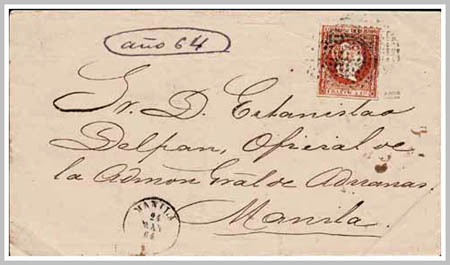 año 64
Sr. D. Estanislao
Delpan, Oficial de
la Admon Gral de Aduanas.
Manila.
MANILA
24
MAY
64